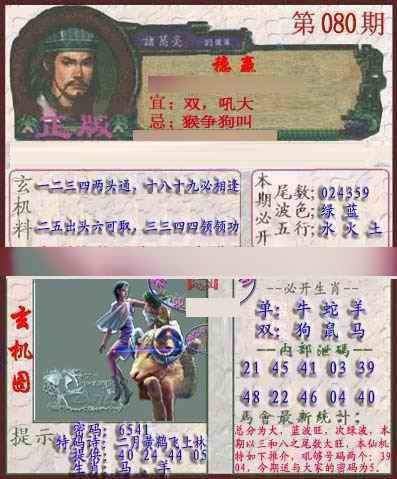 第080期
諸葛亮
劉伯溫
穩贏
宜：双，吼大
忌：猴争狗叫
正版
玄机料
一二三四两头通，十八十九必相逢
二五出头六可取，三三四四领领功
本期必开
尾数；024359
波色；绿 蓝
五行；水 火 土
玄机图
--必开生肖--
单：牛 蛇 羊
双：狗 鼠 马
--内部泄碼--
21 45 41 03 39
48 22 46 04 40
馬會最新統计：
总分为大，蓝波旺，次绿波，本
期以三和八之尾数大旺，本仙机
特如下推介，吼够号码两个：39
04，今期送与大家的密码为5．
提示
密码：6541
特码诗：二月黄鹤飞上林
提倍：40 24 44 05
生肖：马、羊